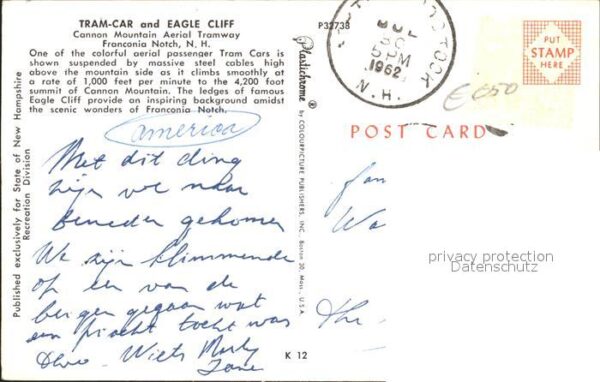 TRAM-CAR and EAGLE CLIFF
Cannon Mountain Aerial Tramway
Franconia Notch, N. H.
One of the colorful aerial passenger Tram Cars is
shown suspended by massive steel cables high
above the mountain side as it climbs smoothly at
a rate of 1,000 feet per minute to the 4,200 foot
summit of Cannon Mountain. The ledges of famous
Eagle Cliff provide an inspiring background amidst
the scenic wonders of Franconia Notch.
america
Met dit ding
zijn we naar
beneden gekomen
We zijn klimmende
op een van de
bergen gegaan wat
een pracht tocht was
Published exclusively for State of New Hampshire
Recreation Division
P32738
Plastichrome ® by COLOURPICTURE PUBLISHERS, INC., Boston 30, Mass., U.S.A.
K 12
30
5 PM
1962
N.H.
PUT
STAMP
HERE
POST CARD
fam
Wa
privacy protection
Datenschutz